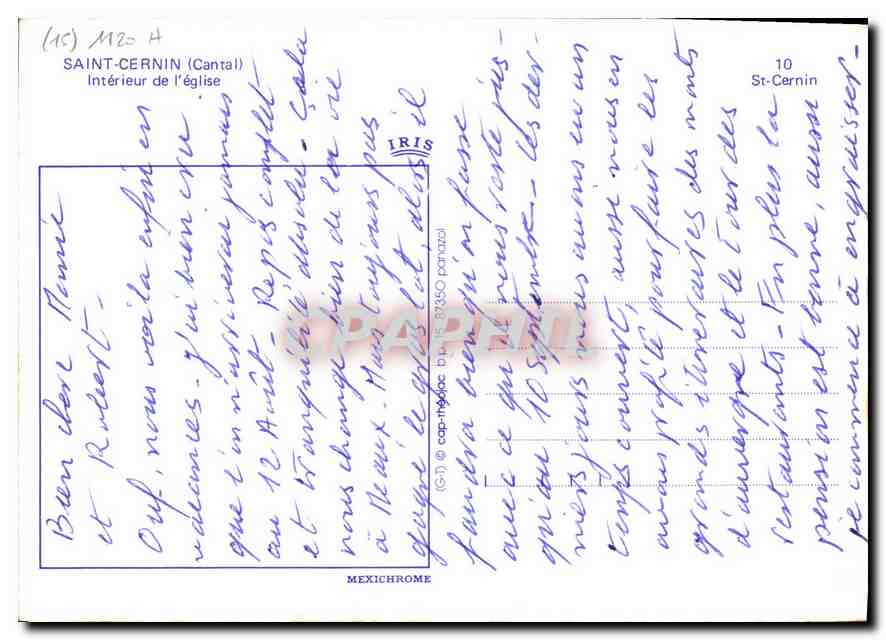 (15) 1120 H
SAINT-CERNIN (Cantal)
Intérieur de l'église
10
St-Cernin
IRIS
Bien chère Mamie
et Robert.
Ouf, nous voilà enfin en
vacances. J'ai bien cru
que l'on n'arriverai jamais
au 12 Août. Repos complet
et tranquillité absolue. Cela
nous change bien de la vie
à Meaux. Mais toujours pas
gagné le gros lot, alors il
faudra bien qu'on fasse
avec ce qu'il nous reste jus-
qu'au 10 Septembre. Les der-
niers jours nous avons eu un
temps couvert, aussi nous en
avons profité pour faire les
grands itinéraires des monts
d'auvergne et le tour des
restaurants. En plus la
pension est bonne, aussi
je commence à engraisser.
(G-T) © cap-théojac b.p. 15 87350 panazol
CPAPHIL
MEXICHROME